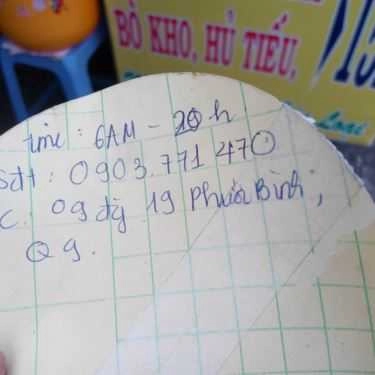 BÒ KHO, HỦ TIẾU,
Loại
time : 6AM - 20h
Sđt : 0903.771 470
C. 09 đg 19 Phước Bình,
Q 9.